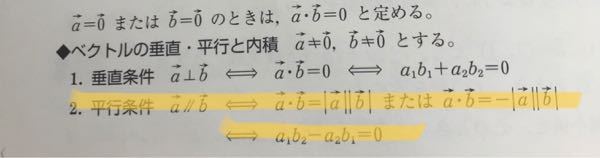 a⃗=0⃗ または b⃗=0⃗ のときは,a⃗・b⃗=0 と定める。
◆ベクトルの垂直・平行と内積 a⃗≠0⃗,b⃗≠0⃗ とする。
1. 垂直条件 a⃗⊥b⃗ ⟺ a⃗・b⃗=0 ⟺ a₁b₁+a₂b₂=0
2. 平行条件 a⃗∥b⃗ ⟺ a⃗・b⃗=|a⃗||b⃗| または a⃗・b⃗=−|a⃗||b⃗|
⟺ a₁b₂−a₂b₁=0